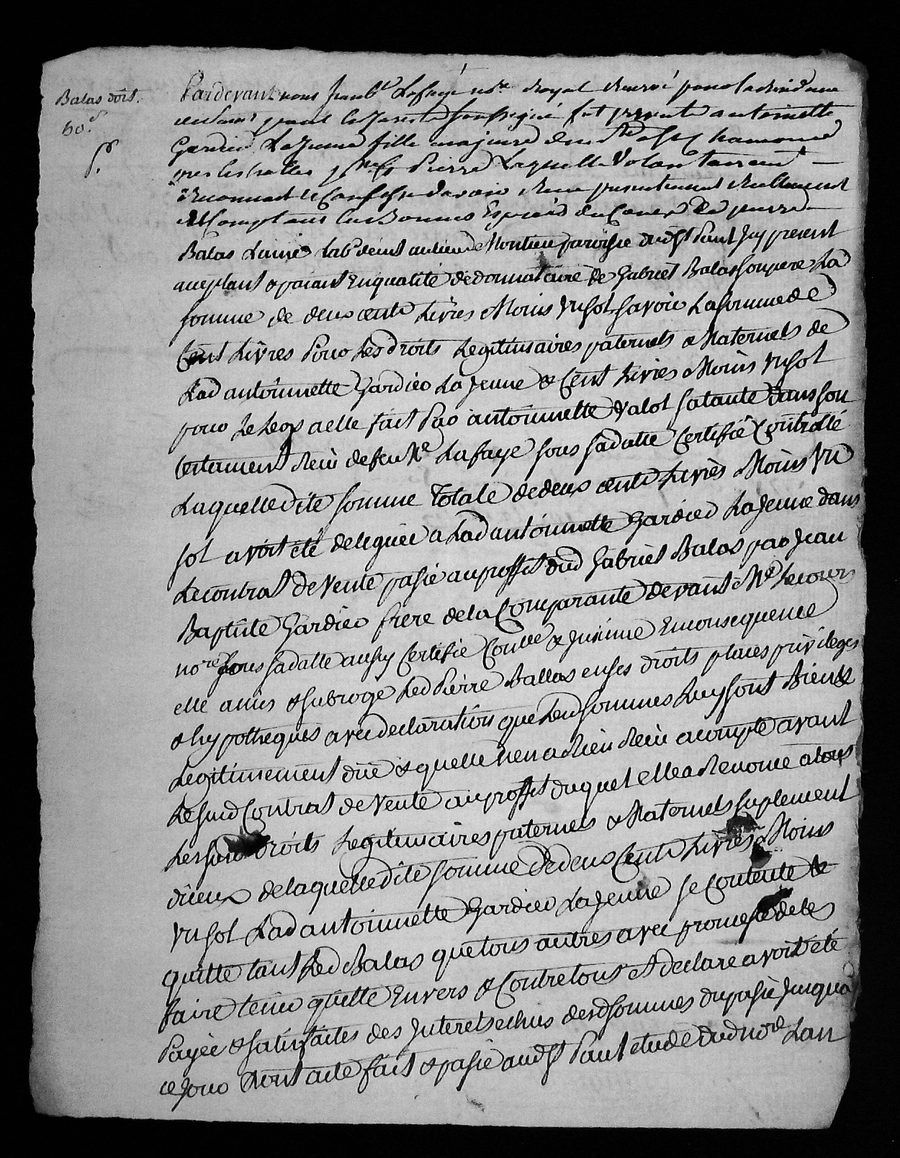 Balas doit.
60.s
Pardevant nous Jean Lafaye no.re Royal Reservé pour la
soussigné fut presente antoinette
Gardier La Jeune fille majeure
Pierre Laquelle Volontairement
a Reconnut & Confessé davoir Reçu presentement Reellement
& Comptant En Bonnes Especes du Cours De pierre
Balas Lainé Lab.r deint au lieu de Montieu paroisse dud st Paul Icy present
aceptant & paiant En qualité de donnataire de Gabriel Balas son pere La
somme de deux cents Livres Moins un sol savoir La somme de
Cent Livres Pour Les droits Legitimaires paternels & Maternels de
Lad antoinnette Gardier La Jeune & Cent Livres Moins un sol
pour Le Legs a elle fait Par antoinnette valot sa tante Dans son
testament Reçu de feu Me Lafaye sous sa datte Certifié Controllé
Laquelle dite somme totale de deux cents Livres Moins un
sol avoit été deleguée a Lad antoinnette Gardier La Jeune dans
Le contrat de Vente passé au proffit dud Gabriel Balas par Jean
Baptiste Gardier frere de la Comparante devant Me Lecours
no.re sous sa datte aussy Certifié Con.llé & Insinué En consequence
elle a mis & subrogé Led Pierre Ballas en ses droits places privileges
& hypotheques avec declaration que Lesd sommes Luy sont Bien &
Legitimement due & quelle nen a Rien Reçu acompte avant
Le sud Contrat de vente au proffit duquel elle a Renoncé a tous
Les droits Legitimaires paternels & Maternels suplement
diceux de laquelle dite somme De deux Cents Livres Moins
un sol Lad antoinnette Gardier La Jeune se Contente &
quitte tant Led Balas que tous autres avec promesse de les
faire tenir quitte Envers & Contre tous et declare avoir été
Payée & satisfaite des Interets echus desd sommes du passé Jusqua
ce Jour Dont acte fait & passé aud st Paul etude dud no.re Lan